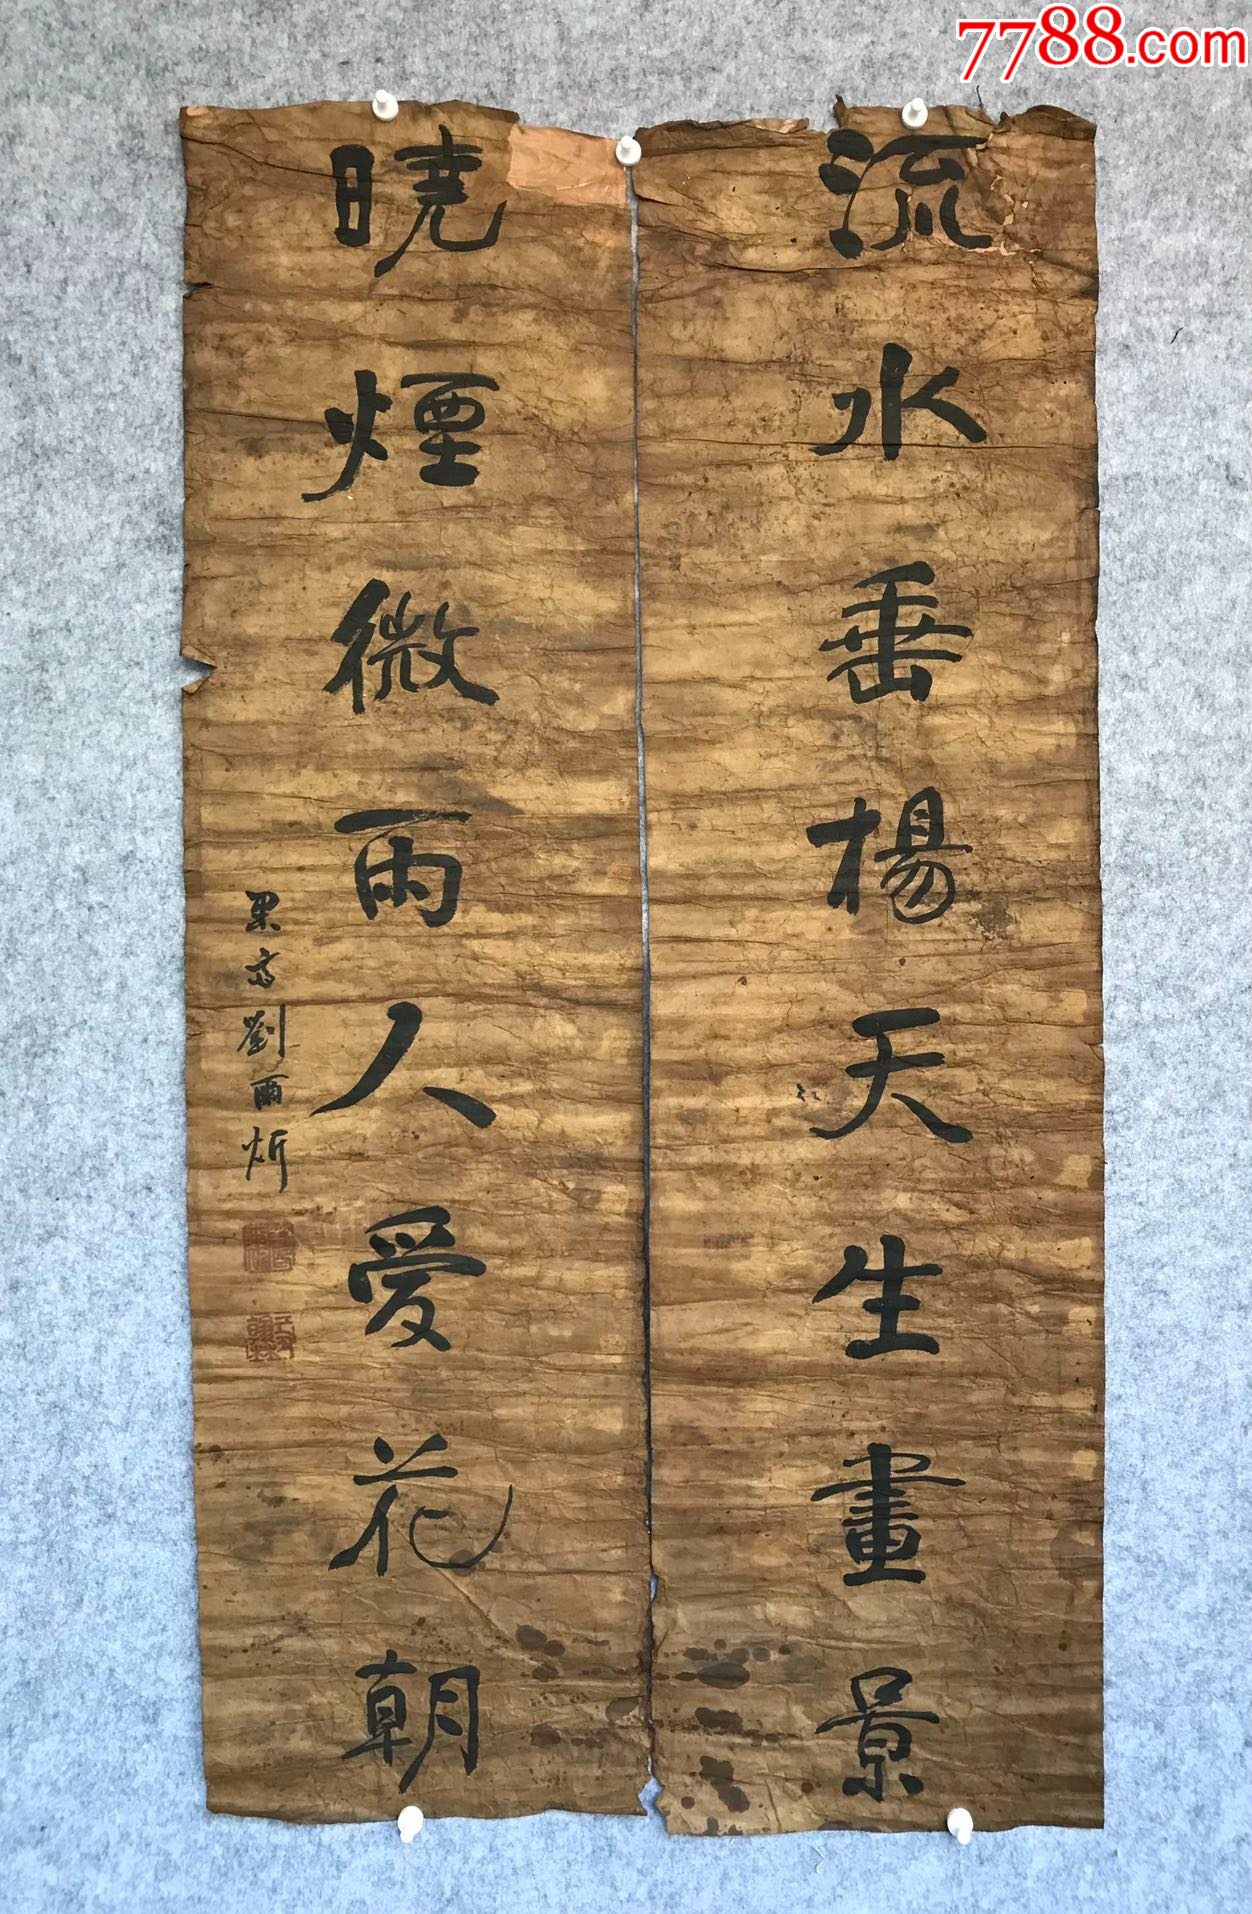 7788.com
流水垂楊天生畫景
曉煙微雨人愛花朝
果齋劉爾炘